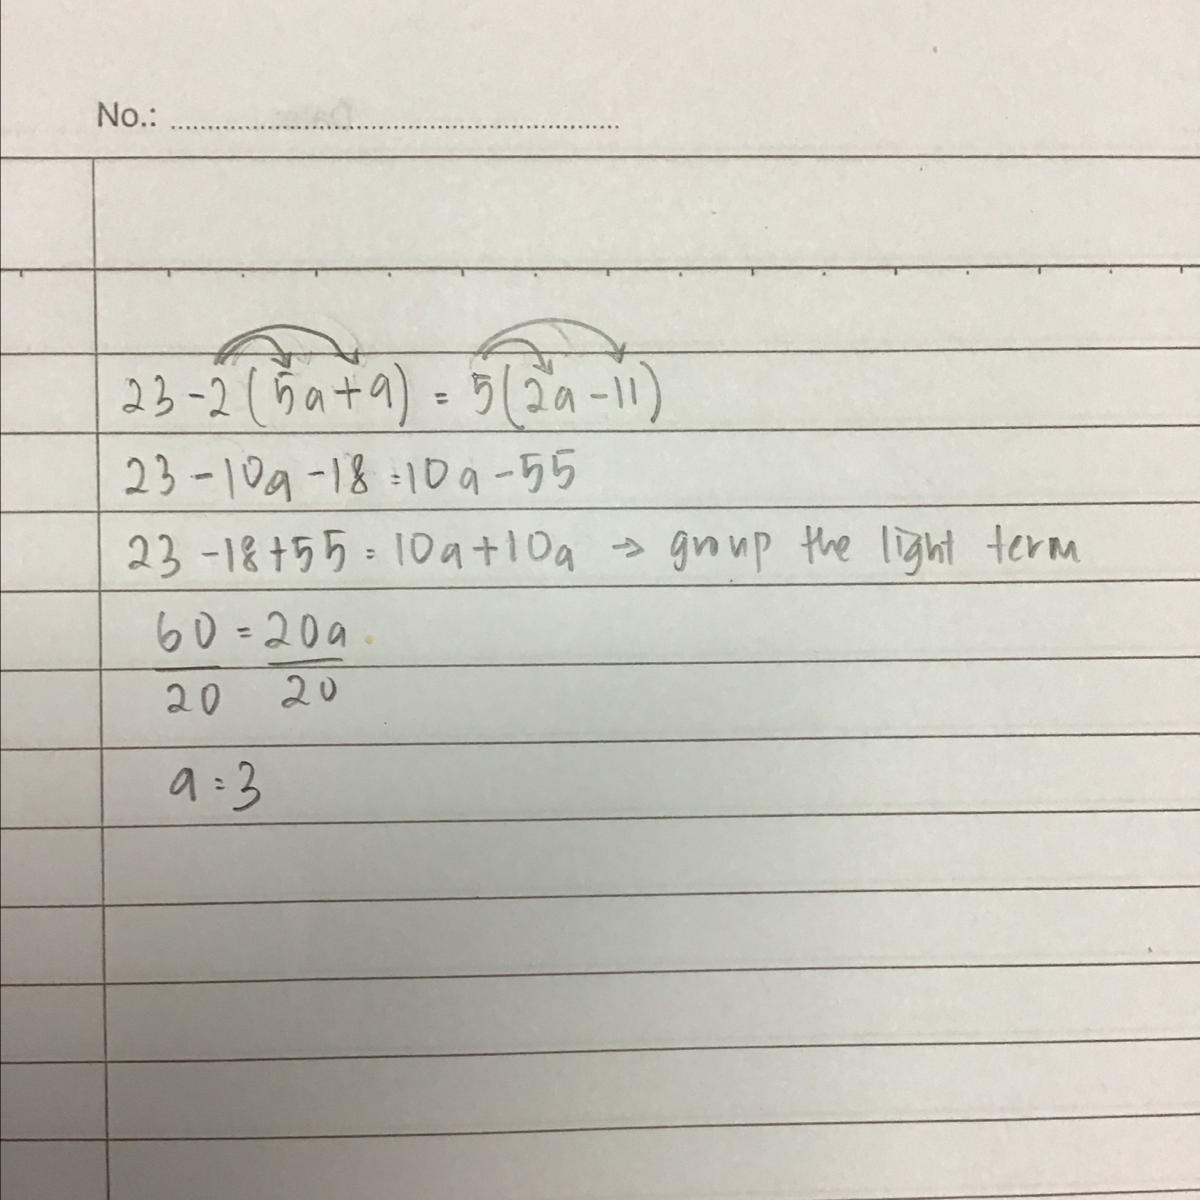 No.:
23 - 2 (5a + 9) = 5(2a - 11)
23 - 10a - 18 = 10a - 55
23 - 18 + 55 = 10a + 10a → group the light term
60 = 20a
20 20
a = 3